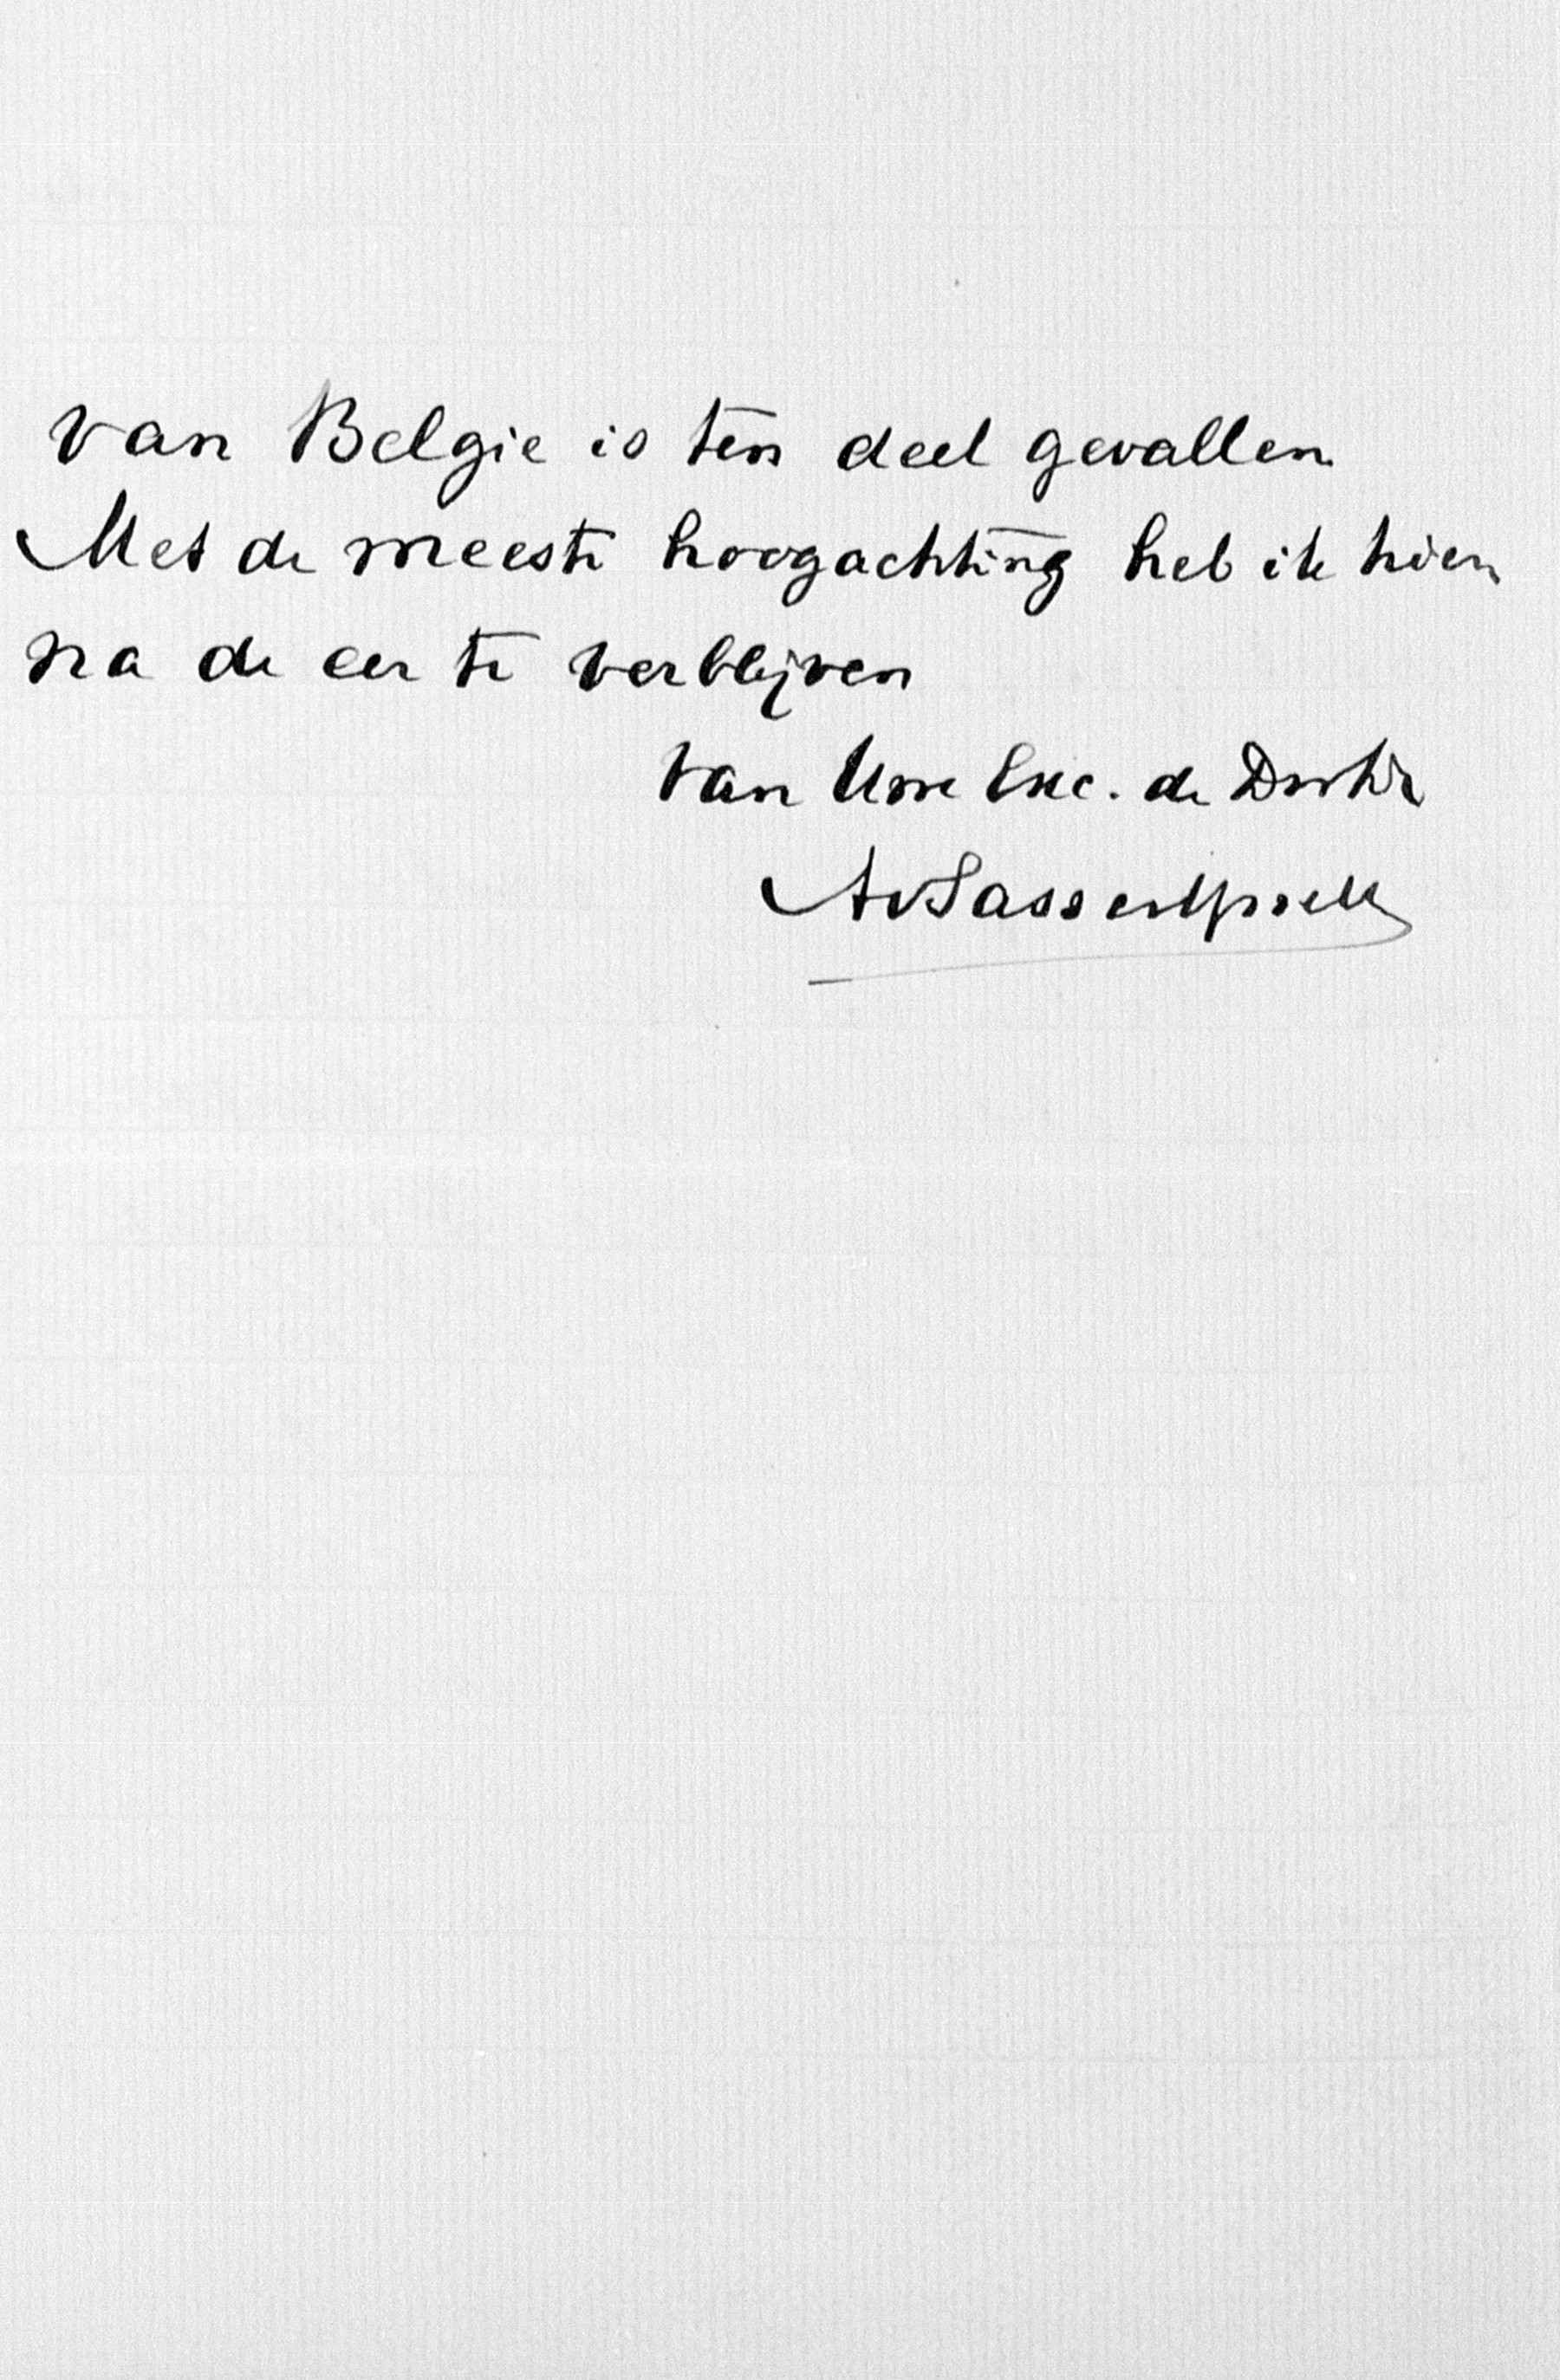 van Belgie is ten deel gevallen.
Met de meeste hoogachting heb ik hier
na de eer te verblijven
van Uwe Exc. de Dwdr